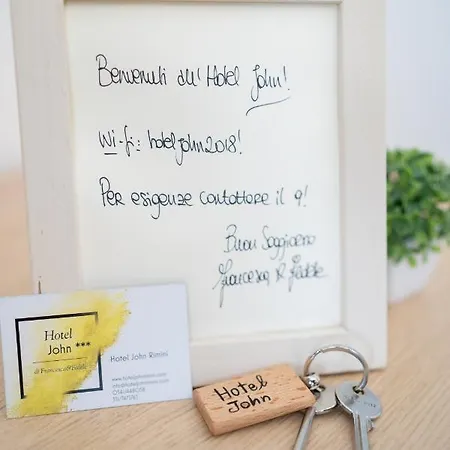 Benvenuti all'Hotel John!
Wi-fi: hoteljohn2018!
Per esigenze contattare il 9!
Buon Soggiorno
Francesca & Fedele
Hotel
John ***
di Francesca & Fedele
Hotel John Rimini
Hotel
John